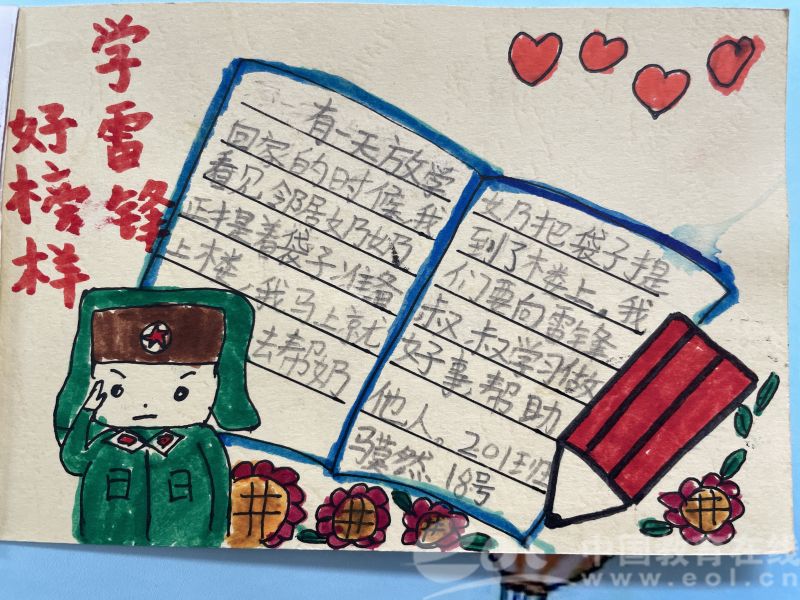 学雷锋
好榜样
有一天放学
回家的时候,我
看见邻居奶奶
正提着袋子准备
上楼,我马上就
去帮奶
奶把袋子提
到了楼上。我
们要向雷锋
叔叔学习做
好事帮助
他人。201班
莫然 18号
中国教育在线
www.eol.cn